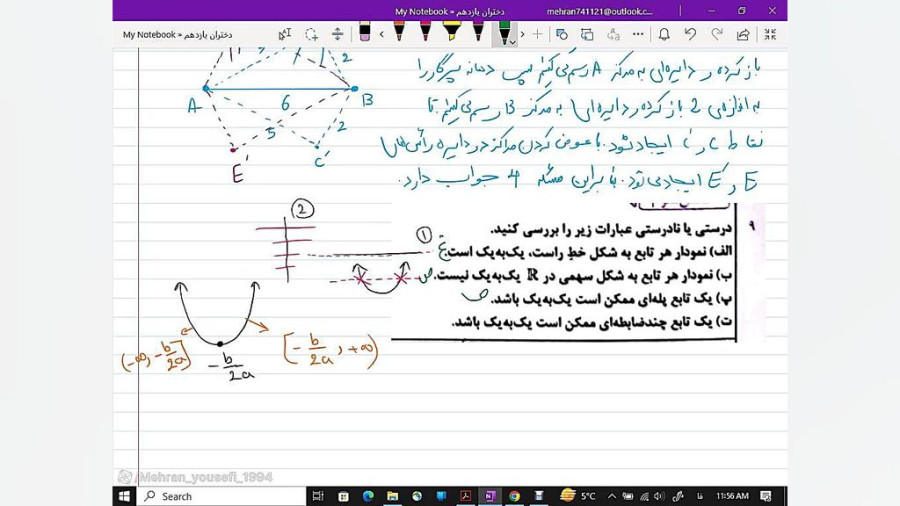 My Notebook » دختران یازدهم
mehran741121@outlook.c...
My Notebook » دختران یازدهم
باز کرده و دایره‌ای به مرکز A رسم می‌کنیم سپس دهانه پرگار را
به اندازه‌ی 2 باز کرده و دایره‌ای به مرکز B رسم می‌کنیم تا
نقاط C و C' ایجاد شود. با عوض کردن مراکز دو دایره رأس‌های
E و E' ایجاد می‌شود. بنابراین مسئله 4 جواب دارد.
2
A
6
B
5
2
E'
C'
۹
درستی یا نادرستی عبارات زیر را بررسی کنید.
الف) نمودار هر تابع به شکل خط راست، یک‌به‌یک است. غ
ب) نمودار هر تابع به شکل سهمی در ℝ یک‌به‌یک نیست. ص
پ) یک تابع پله‌ای ممکن است یک‌به‌یک باشد. ص
ت) یک تابع چندضابطه‌ای ممکن است یک‌به‌یک باشد.
②
①
(-∞, -b/2a]
-b/2a
[-b/2a, +∞)
/Mehran_yousefi_1994
Search
5°C
فا
11:56 AM